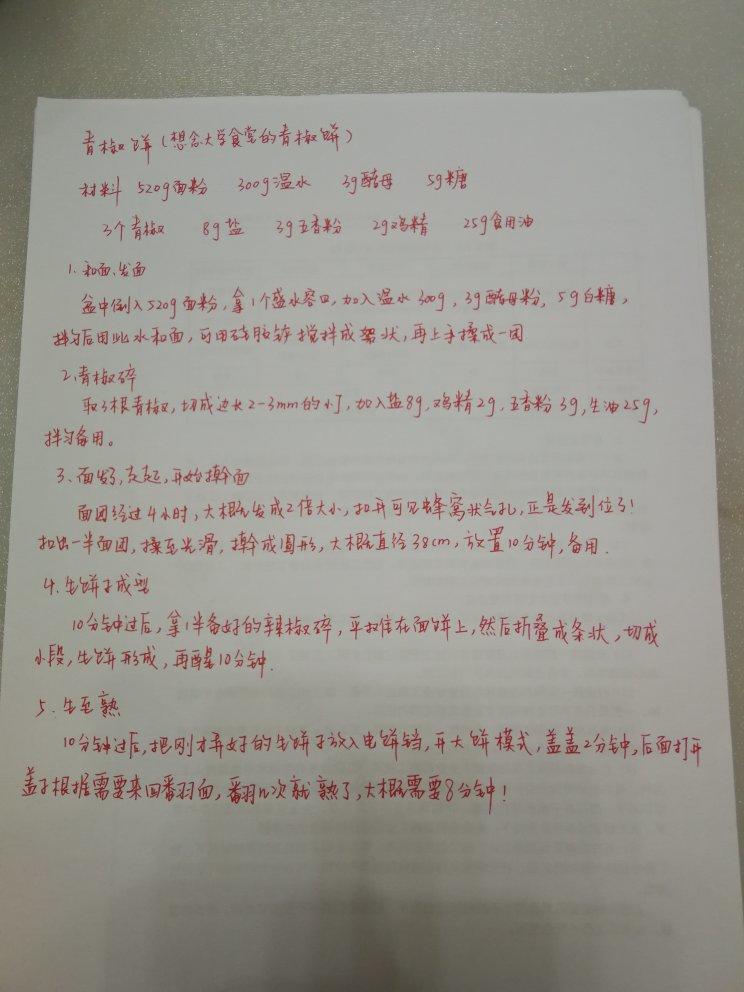 青椒饼(想念大学食堂的青椒饼)
材料 520g面粉 300g温水 3g酵母 5g糖
3个青椒 8g盐 3g五香粉 2g鸡精 25g食用油
1. 和面、发面
盆中倒入520g面粉,拿1个盛水容皿,加入温水300g,3g酵母粉,5g白糖,
拌匀后用此水和面,可用硅胶铲搅拌成絮状,再上手揉成一团
2. 青椒碎
取3根青椒,切成边长2-3mm的小丁,加入盐8g,鸡精2g,五香粉3g,生油25g,
拌匀备用。
3、面发了,走起,开始擀面
面团经过4小时,大概发成2倍大小,扣开可见蜂窝状气孔,正是发到位了!
扣出一半面团,揉至光滑,擀成圆形,大概直径38cm,放置10分钟,备用.
4. 生饼子成型
10分钟过后,拿1半备好的辣椒碎,平放在面饼上,然后折叠成条状,切成
小段,生饼形成,再醒10分钟.
5. 生至熟
10分钟过后,把刚才弄好的生饼子放入电饼铛,开大饼模式,盖盖2分钟,后面打开
盖子根据需要来回翻面,翻n次就熟了,大概需要8分钟!